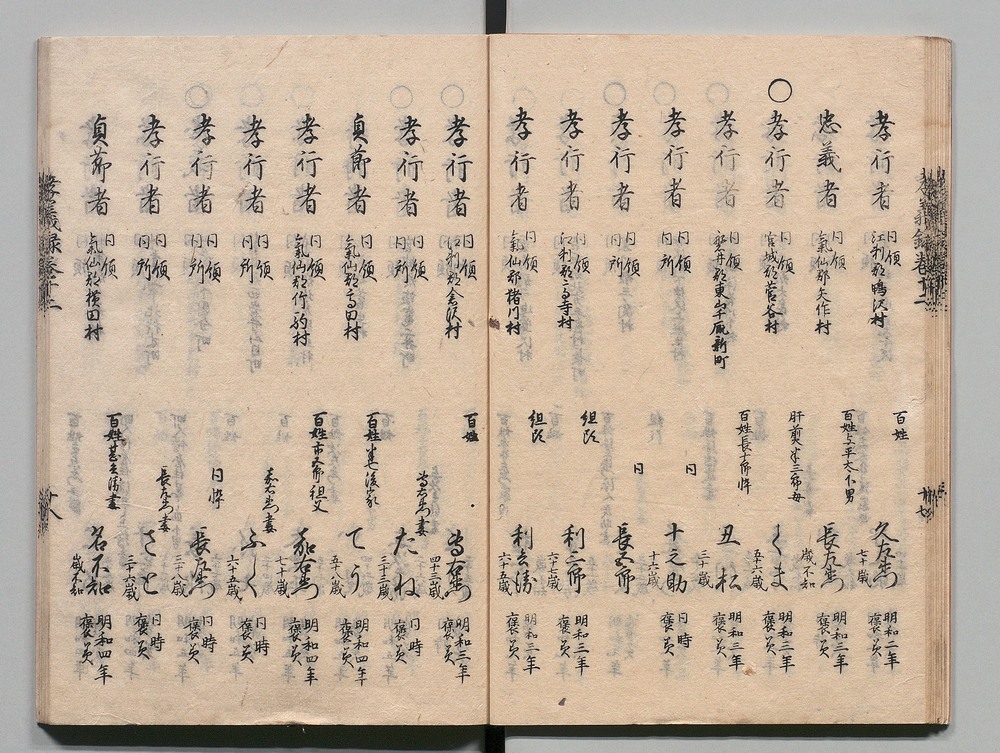 孝行者 同領 江刺郡鴨沢村 百姓 久左衛門 七十歳 明和二年 褒美
忠義者 同領 氣仙郡矢作村 百姓与平太下男 長左衛門 歳不知 明和三年 褒美
○孝行者 同領 宮城郡菅谷村 肝煎半三郎母 くま 五十六歳 明和三年 褒美
孝行者 同領 磐井郡東山千厩新町 百姓長十郎悴 丑松 三十歳 明和三年 褒美
孝行者 同領 同所 同 十之助 十六歳 同時 褒美
孝行者 同領 同所 同 長五郎
孝行者 同領 江刺郡高寺村 組頭 利三郎 六十七歳 明和三年 褒美
孝行者 同領 氣仙郡猪川村 組頭 利兵衛 六十五歳 明和三年 褒美
孝行者 同領 江刺郡倉沢村 百姓 四十三歳 明和三年 褒美
孝行者 同領 同所 妻 たね 三十三歳 同時 褒美
貞節者 同領 氣仙郡高田村 百姓 後家 てう 五十八歳 明和四年 褒美
孝行者 同領 氣仙郡竹駒村 百姓市郎祖父 七十歳 明和四年 褒美
孝行者 同領 同所 妻 ふく 六十五歳 同時 褒美
孝行者 同領 同所 同悴 長左衛門 三十八歳 同時 褒美
孝行者 同領 同所 長左衛門妻 さと 三十六歳 同時 褒美
貞節者 同領 氣仙郡横田村 百姓甚兵衛妻 名不知 歳不知 明和四年 褒美
孝義録巻十二